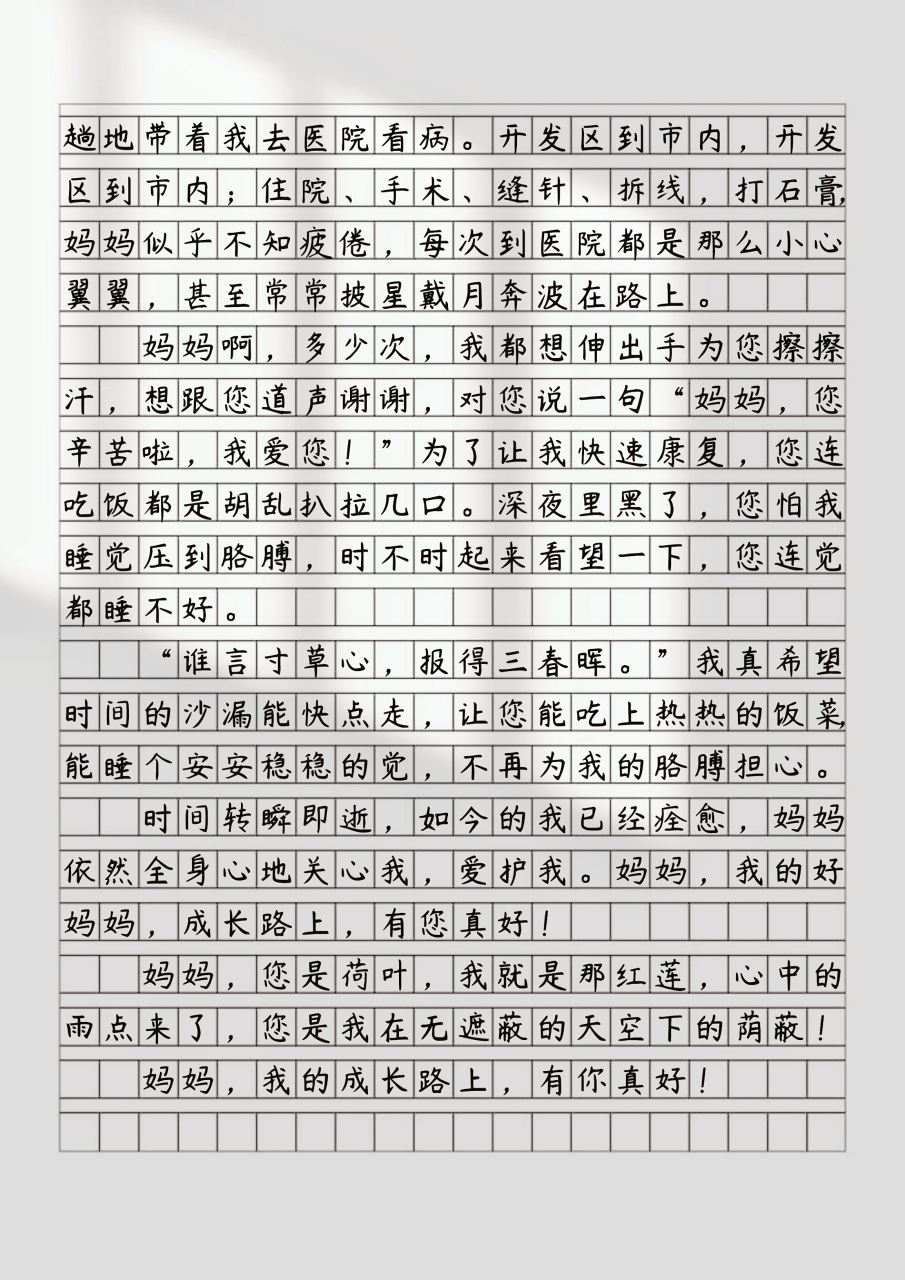 趟地带着我去医院看病。开发区到市内，开发
区到市内；住院、手术、缝针、拆线，打石膏，
妈妈似乎不知疲倦，每次到医院都是那么小心
翼翼，甚至常常披星戴月奔波在路上。
妈妈啊，多少次，我都想伸出手为您擦擦
汗，想跟您道声谢谢，对您说一句“妈妈，您
辛苦啦，我爱您！”为了让我快速康复，您连
吃饭都是胡乱扒拉几口。深夜里黑了，您怕我
睡觉压到胳膊，时不时起来看望一下，您连觉
都睡不好。
“谁言寸草心，报得三春晖。”我真希望
时间的沙漏能快点走，让您能吃上热热的饭菜，
能睡个安安稳稳的觉，不再为我的胳膊担心。
时间转瞬即逝，如今的我已经痊愈，妈妈
依然全身心地关心我，爱护我。妈妈，我的好
妈妈，成长路上，有您真好！
妈妈，您是荷叶，我就是那红莲，心中的
雨点来了，您是我在无遮蔽的天空下的荫蔽！
妈妈，我的成长路上，有你真好！